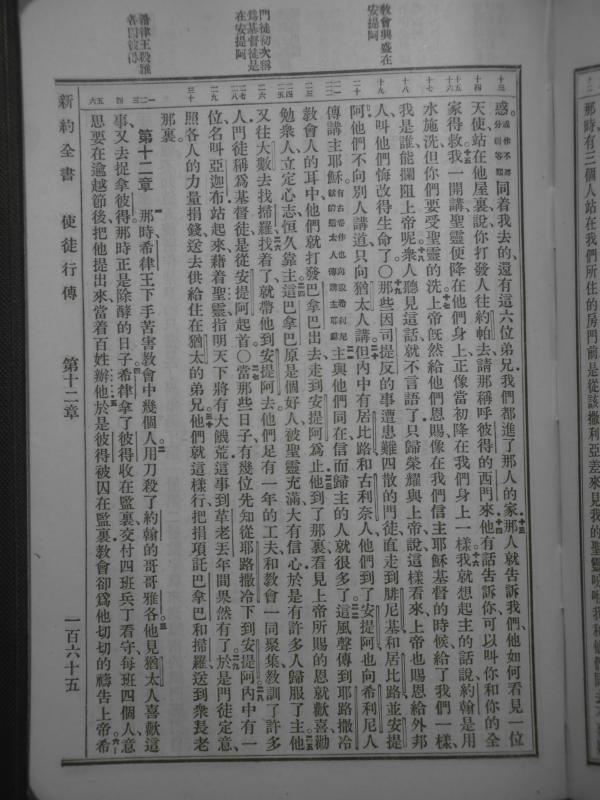 教會興盛在
安提阿
門徒初次稱
爲基督徒是
在安提阿
希律王殺雅
各囚彼得
惑。或作不要分別等類同着我去的、還有這六位弟兄、我們都進了那人的家、那人就告訴我們、他如何看見一位
天使站在他屋裏、說你打發人往約帕去、請那稱呼彼得的西門來、他有話告訴你、可以叫你和你的全
家得救。我一開講、聖靈便降在他們身上、正像當初降在我們身上一樣。我就想起主的話說、約翰是用
水施洗、但你們要受聖靈的洗。上帝旣然給他們恩賜、像在我們信主耶穌基督的時候給了我們一樣、
我是誰能攔阻上帝呢。衆人聽見這話、就不言語了、只歸榮耀與上帝說、這樣看來、上帝也賜恩給外邦
人、叫他們悔改得生命了。○那些因司提反的事遭患難四散的門徒、直走到腓尼基、和居比路、並安提
阿、他們不向別人講道、只向猶太人講。但內中有居比路、和古利奈人、他們到了安提阿、也向希利尼人
傳講主耶穌。有古卷作也向說希利尼話的猶太人傳講主耶穌主與他們同在、信而歸主的人就很多了。這風聲傳到耶路撒冷
教會人的耳中、他們就打發巴拿巴出去、走到安提阿爲止。他到了那裏、看見上帝所賜的恩、就歡喜、勸
勉衆人、立定心志、恒久靠主。這巴拿巴原是個好人、被聖靈充滿、大有信心、於是有許多人歸服了主。他
又往大數去找掃羅、找着了、就帶他到安提阿去。他們足有一年的工夫、和教會一同聚集、教訓了許多
人、門徒稱爲基督徒、是從安提阿起首。○當那些日子、有幾位先知從耶路撒冷下到安提阿。內中有一
位名叫亞迦布、站起來、藉着聖靈、指明天下將有大饑荒。這事到革老丟年間果然有了。於是門徒定意、
照各人的力量捐錢、送去供給住在猶太的弟兄。他們就這樣行、把捐項託巴拿巴和掃羅、送到衆長老
那裏。
第十二章 那時希律王下手苦害教會中幾個人、用刀殺了約翰的哥哥雅各。他見猶太人喜歡這
事、又去捉拿彼得、那時正是除酵的日子。希律拿了彼得收在監裏、交付四班兵丁看守、每班四個人、意
思要在逾越節後、把他提出來、當着百姓辦他。於是彼得被囚在監裏、教會卻爲他切切的禱告上帝。希
新約全書 使徒行傳 第十二章 一百六十五
那時有三個人站在我們所住的房門前、是從該撒利亞差來見我的。